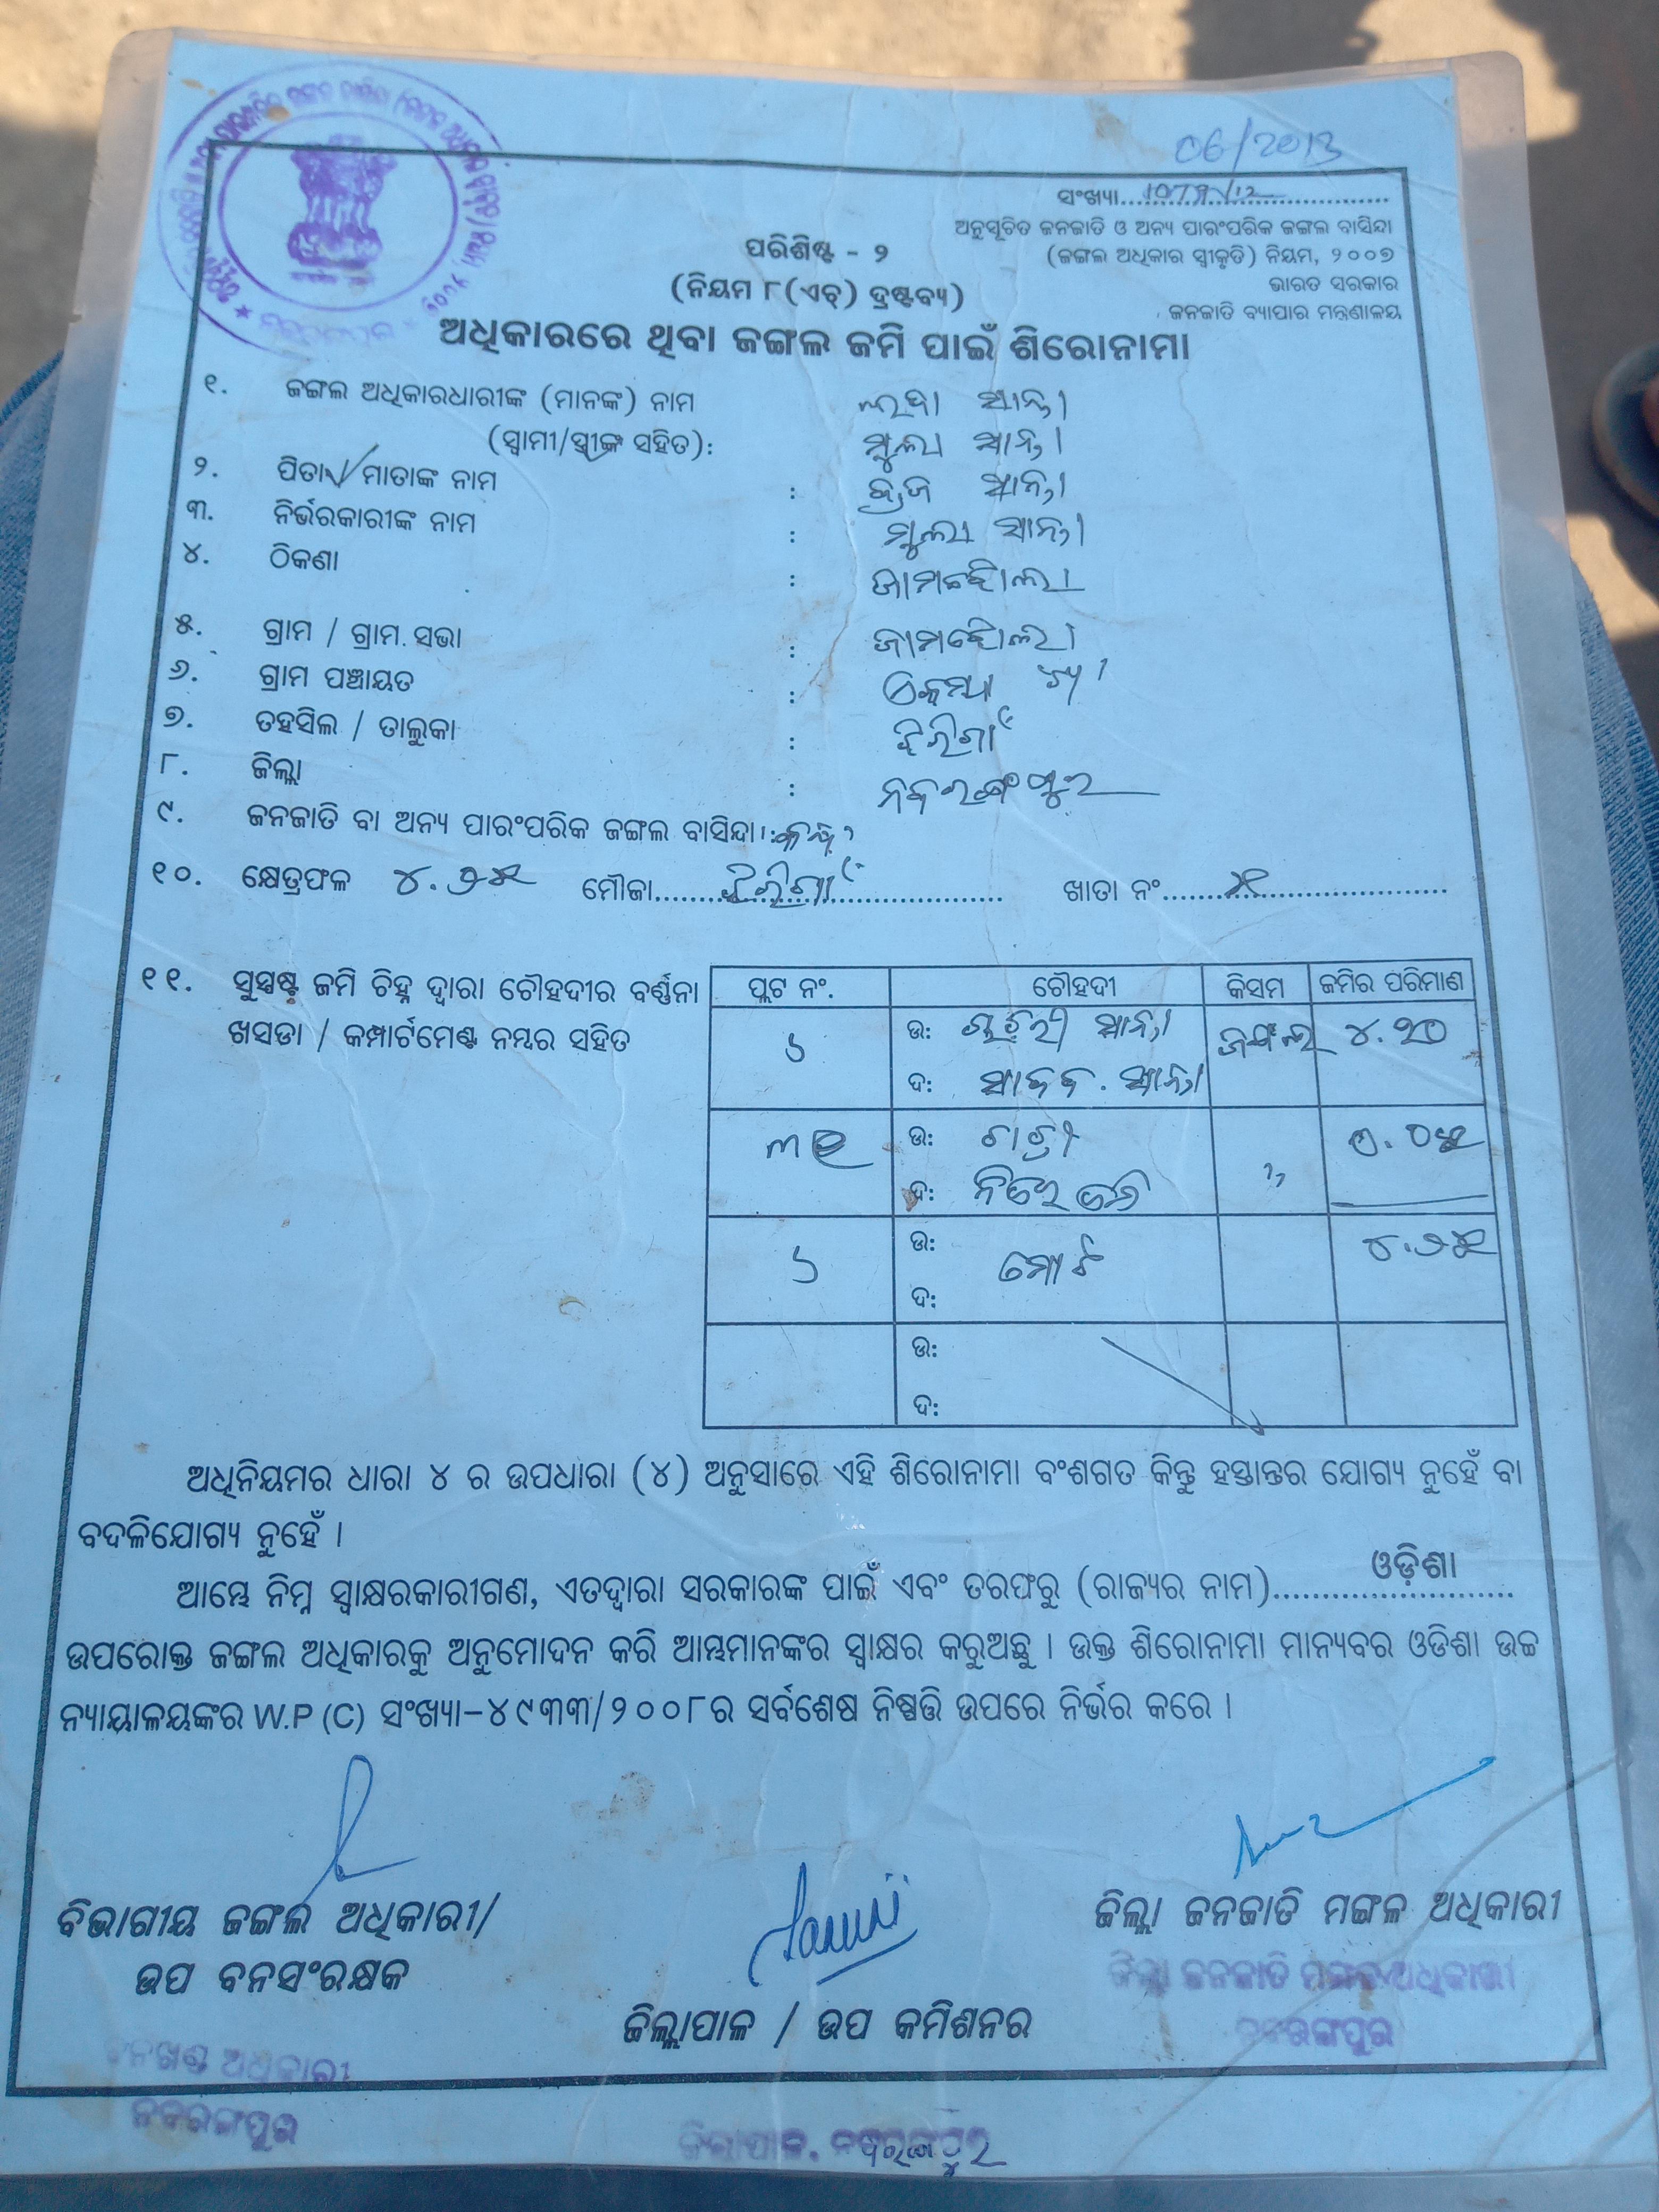 06/2013
ସଂଖ୍ୟା....................
ଅନୁସୂଚିତ ଜନଜାତି ଓ ଅନ୍ୟ ପାରଂପରିକ ଜଙ୍ଗଲ ବାସିନ୍ଦା
(ଜଙ୍ଗଲ ଅଧିକାର ସ୍ୱୀକୃତି) ନିୟମ, ୨୦୦୭
ଭାରତ ସରକାର
ଜନଜାତି ବ୍ୟାପାର ମନ୍ତ୍ରଣାଳୟ
ପରିଶିଷ୍ଟ - ୨
(ନିୟମ ୮(ଏଚ୍) ଦ୍ରଷ୍ଟବ୍ୟ)
ଅଧିକାରରେ ଥିବା ଜଙ୍ଗଲ ଜମି ପାଇଁ ଶିରୋନାମା
୧. ଜଙ୍ଗଲ ଅଧିକାରଧାରୀଙ୍କ (ମାନଙ୍କ) ନାମ ସାନ୍ତା
(ସ୍ୱାମୀ/ସ୍ତ୍ରୀଙ୍କ ସହିତ): ମୁଲା ସାନ୍ତା
୨. ପିତା/ମାତାଙ୍କ ନାମ : ସାନ୍ତା
୩. ନିର୍ଭରକାରୀଙ୍କ ନାମ : ମୁଲା ସାନ୍ତା
୪. ଠିକଣା :
୫. ଗ୍ରାମ / ଗ୍ରାମ ସଭା :
୬. ଗ୍ରାମ ପଞ୍ଚାୟତ :
୭. ତହସିଲ / ତାଲୁକା : ଝରିଗାଁ
୮. ଜିଲ୍ଲା : ନବରଙ୍ଗପୁର
୯. ଜନଜାତି ବା ଅନ୍ୟ ପାରଂପରିକ ଜଙ୍ଗଲ ବାସିନ୍ଦା :
୧୦. କ୍ଷେତ୍ରଫଳ ୪.୨୫ ମୌଜା........ଝରିଗାଁ........ ଖାତା ନଂ................
୧୧. ସୁସ୍ପଷ୍ଟ ଜମି ଚିହ୍ନ ଦ୍ୱାରା ଚୌହଦୀର ବର୍ଣ୍ଣନା
ଖସଡା / କମ୍ପାର୍ଟମେଣ୍ଟ ନମ୍ବର ସହିତ
ପ୍ଲଟ ନଂ. ଚୌହଦୀ କିସମ ଜମିର ପରିମାଣ
୧ ଉ: ସାନ୍ତା ଜଙ୍ଗଲ ୪.୨୦
ଦ: ସାନ୍ତା
ଉ: ୦.୦୫
ଦ: ନିଜେ
୧ ଉ: ମୋଟ ୪.୨୫
ଦ:
ଉ:
ଦ:
ଅଧିନିୟମର ଧାରା ୪ ର ଉପଧାରା (୪) ଅନୁସାରେ ଏହି ଶିରୋନାମା ବଂଶଗତ କିନ୍ତୁ ହସ୍ତାନ୍ତର ଯୋଗ୍ୟ ନୁହେଁ ବା
ବଦଳିଯୋଗ୍ୟ ନୁହେଁ ।
ଆମ୍ଭେ ନିମ୍ନ ସ୍ୱାକ୍ଷରକାରୀଗଣ, ଏତଦ୍ୱାରା ସରକାରଙ୍କ ପାଇଁ ଏବଂ ତରଫରୁ (ରାଜ୍ୟର ନାମ)........ଓଡ଼ିଶା........
ଉପରୋକ୍ତ ଜଙ୍ଗଲ ଅଧିକାରକୁ ଅନୁମୋଦନ କରି ଆମ୍ଭମାନଙ୍କର ସ୍ୱାକ୍ଷର କରୁଅଛୁ । ଉକ୍ତ ଶିରୋନାମା ମାନ୍ୟବର ଓଡିଶା ଉଚ୍ଚ
ନ୍ୟାୟାଳୟଙ୍କର W.P (C) ସଂଖ୍ୟା-୪୯୩୩/୨୦୦୮ର ସର୍ବଶେଷ ନିଷ୍ପତ୍ତି ଉପରେ ନିର୍ଭର କରେ ।
ବିଭାଗୀୟ ଜଙ୍ଗଲ ଅଧିକାରୀ/
ଉପ ବନସଂରକ୍ଷକ
ଜିଲ୍ଲାପାଳ / ଉପ କମିଶନର
ଜିଲ୍ଲା ଜନଜାତି ମଙ୍ଗଳ ଅଧିକାରୀ
ଜିଲ୍ଲା ଜନଜାତି ମଙ୍ଗଳ ଅଧିକାରୀ
ନବରଙ୍ଗପୁର
ବନଖଣ୍ଡ ଅଧିକାରୀ
ନବରଙ୍ଗପୁର
ଜିଲ୍ଲାପାଳ, ନବରଙ୍ଗପୁର